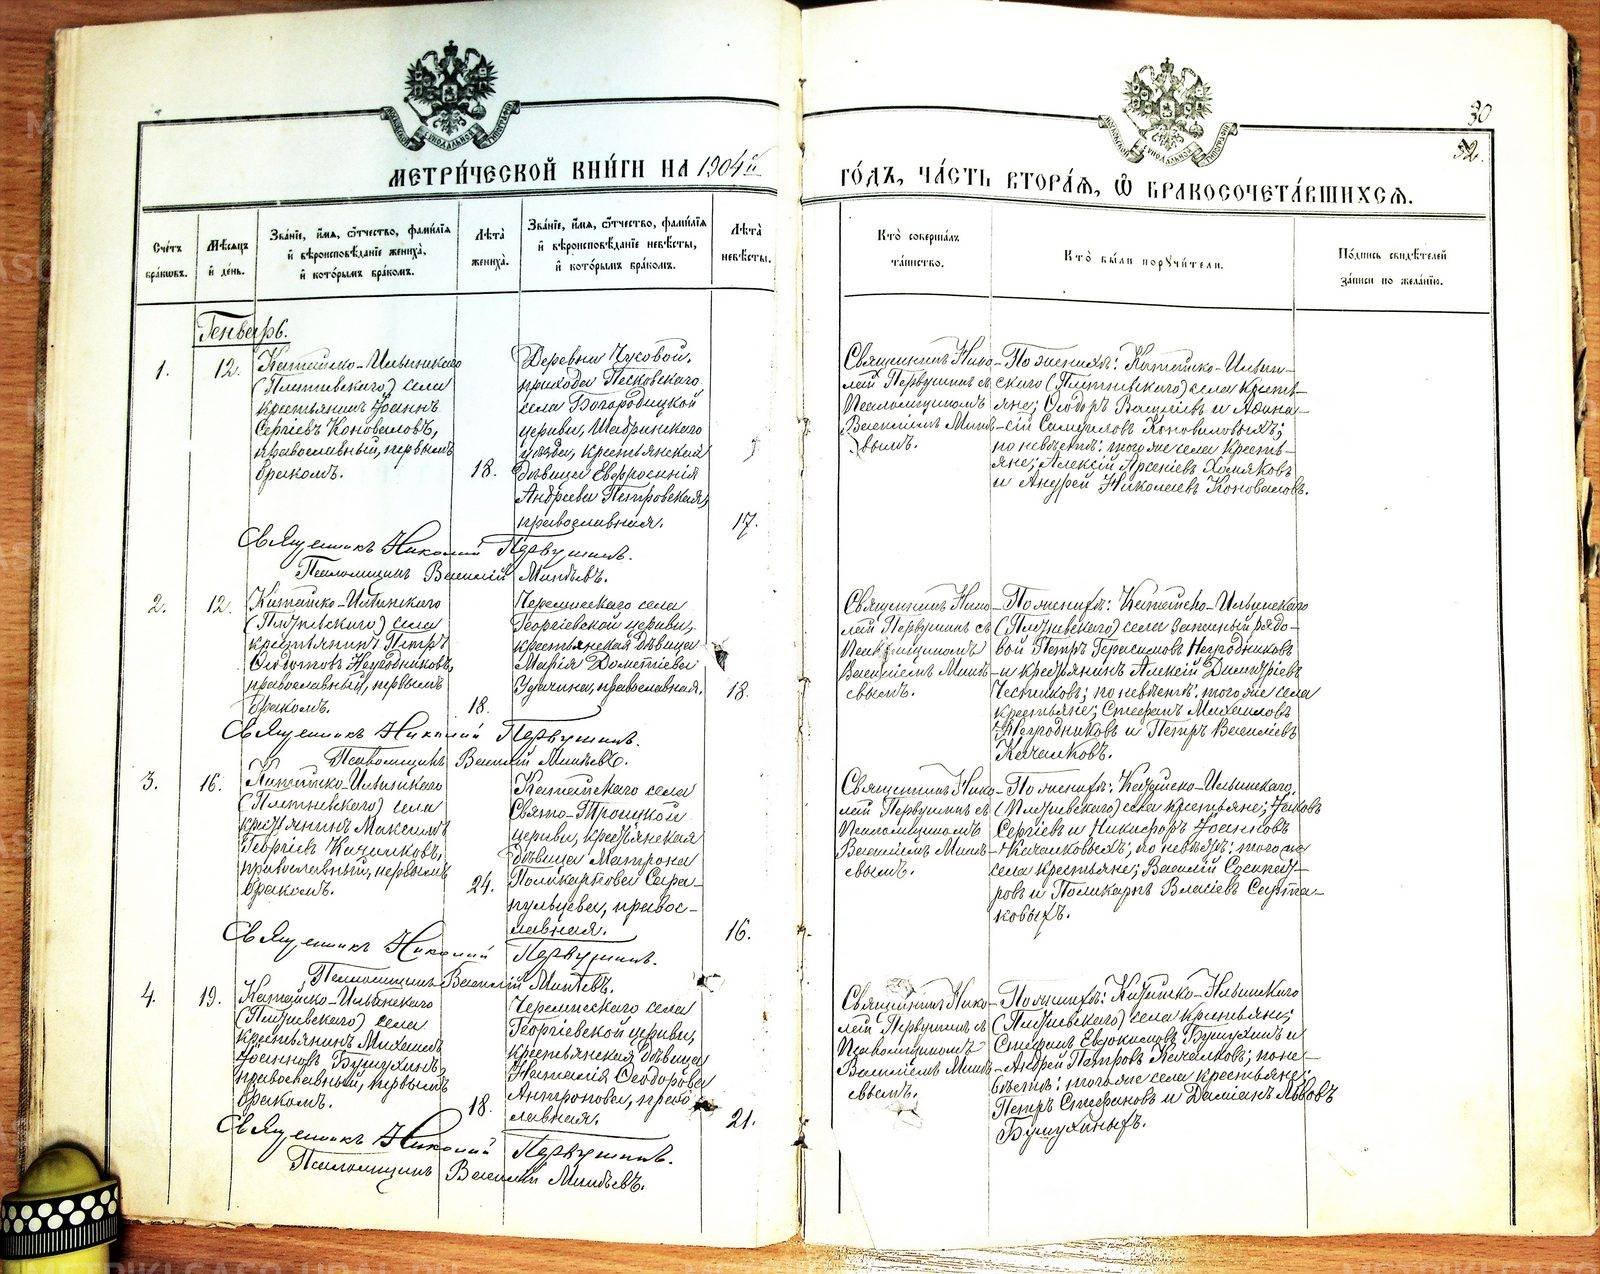 МЕТРИ́ЧЕСКОЙ КНИ́ГИ НА 1904й
ГО́ДЪ, ЧА́СТЬ ВТОРА́Ѧ, Ѽ БРАКОСОЧЕТА́ВШИХСѦ.
30
32.
Сче́тъ бра́ковъ.
Мѣ́сѧцъ и҆ де́нь.
Зва́нїе, и҆́мѧ, ѻ҆́тчество, фами́лїѧ и҆ вѣроисповѣ́данїе жениха̀, и҆ кото́рымъ бра́комъ.
Лѣ́та жениха̀.
Зва́нїе, и҆́мѧ, ѻ҆́тчество, фами́лїѧ и҆ вѣроисповѣ́данїе невѣ́сты, и҆ кото́рымъ бра́комъ.
Лѣ́та невѣ́сты.
Кто̀ соверша́лъ та́инство.
Кто̀ бы́ли порꙋчи́тели.
По́дпись свидѣ́телей за́писи по жела́нїю.
Генварь.
1.
12.
Катайско-Ильинскаго
(Плетневскаго) села
крестьянинъ Іоаннъ
Сергіевъ Коноваловъ,
православный, первымъ
бракомъ.
18.
Деревни
прихода Песковскаго
села Богородицкой
церкви, Шадринскаго
уѣзда, крестьянская
дѣвица Евфросинія
Андреева Петровская,
православная.
17.
Священникъ Нико-
лай Первушинъ съ
Псаломщикомъ
Василіемъ Минѣ-
евымъ.
По женихѣ: Катайско-Ильин-
скаго (Плетневскаго) села кресть-
яне; Ѳеодоръ Василіевъ и Аѳана-
сій Самуиловъ Коноваловыхъ;
по невѣстѣ: того же села кресть-
яне; Алексій Арсеніевъ Хомяковъ
и Андрей Николаевъ Коноваловъ.
Священникъ Николай Первушинъ.
Псаломщикъ Василій Минѣевъ.
2.
12.
Катайско-Ильинскаго
(Плетневскаго) села
крестьянинъ Петръ
Ѳедотовъ Негодниковъ,
православный, первымъ
бракомъ.
18.
Черемисскаго села
Георгіевской церкви,
крестьянская дѣвица
Марія Дометіева
Удачина, православная.
18.
Священникъ Нико-
лай Первушинъ съ
Псаломщикомъ
Василіемъ Минѣ-
евымъ.
По женихѣ: Катайско-Ильинскаго
(Плетневскаго) села запасный рядо-
вой Петръ Герасимовъ Негодниковъ
и крестьянинъ Алексій Димитріевъ
Чесноковъ; по невѣстѣ: того же села
крестьяне; Стефанъ Михаиловъ
Негодниковъ и Петръ Василіевъ
Качалковъ.
Священникъ Николай Первушинъ.
Псаломщикъ Василій Минѣевъ.
3.
16.
Катайско-Ильинскаго
(Плетневскаго) села
крестьянинъ Максимъ
Георгіевъ Качалковъ,
православный, первымъ
бракомъ.
24.
Катайскаго села
Свято-Троицкой
церкви, крестьянская
дѣвица Матрона
Поликарпова Сара-
пульцева, правос-
лавная.
16.
Священникъ Нико-
лай Первушинъ съ
Псаломщикомъ
Василіемъ Минѣ-
евымъ.
По женихѣ: Катайско-Ильинскаго
(Плетневскаго) села крестьяне; Іаковъ
Сергіевъ и Никифоръ Іоанновъ
Качалковыхъ; по невѣстѣ: того же
села крестьяне; Василій Сосипат-
ровъ и Поликарпъ Власіевъ Сарта-
ковыхъ.
Священникъ Николай Первушинъ.
Псаломщикъ Василій Минѣевъ.
4.
19.
Катайско-Ильинскаго
(Плетневскаго) села
крестьянинъ Михаилъ
Іоанновъ Бушухинъ,
православный, первымъ
бракомъ.
18.
Черемисскаго села
Георгіевской церкви,
крестьянская дѣвица
Наталія Ѳеодорова
Антропова, право
славная.
21.
Священникъ Нико-
лай Первушинъ съ
Псаломщикомъ
Василіемъ Минѣ-
евымъ.
По женихѣ: Катайско-Ильинскаго
(Плетневскаго) села крестьяне;
Стефанъ Евдокимовъ Бушухинъ и
Андрей Петровъ Качалковъ; по не-
вѣстѣ: того же села крестьяне;
Петръ Стефановъ и Даміанъ Львовъ
Бушухиныхъ.
Священникъ Николай Первушинъ.
Псаломщикъ Василій Минѣевъ.